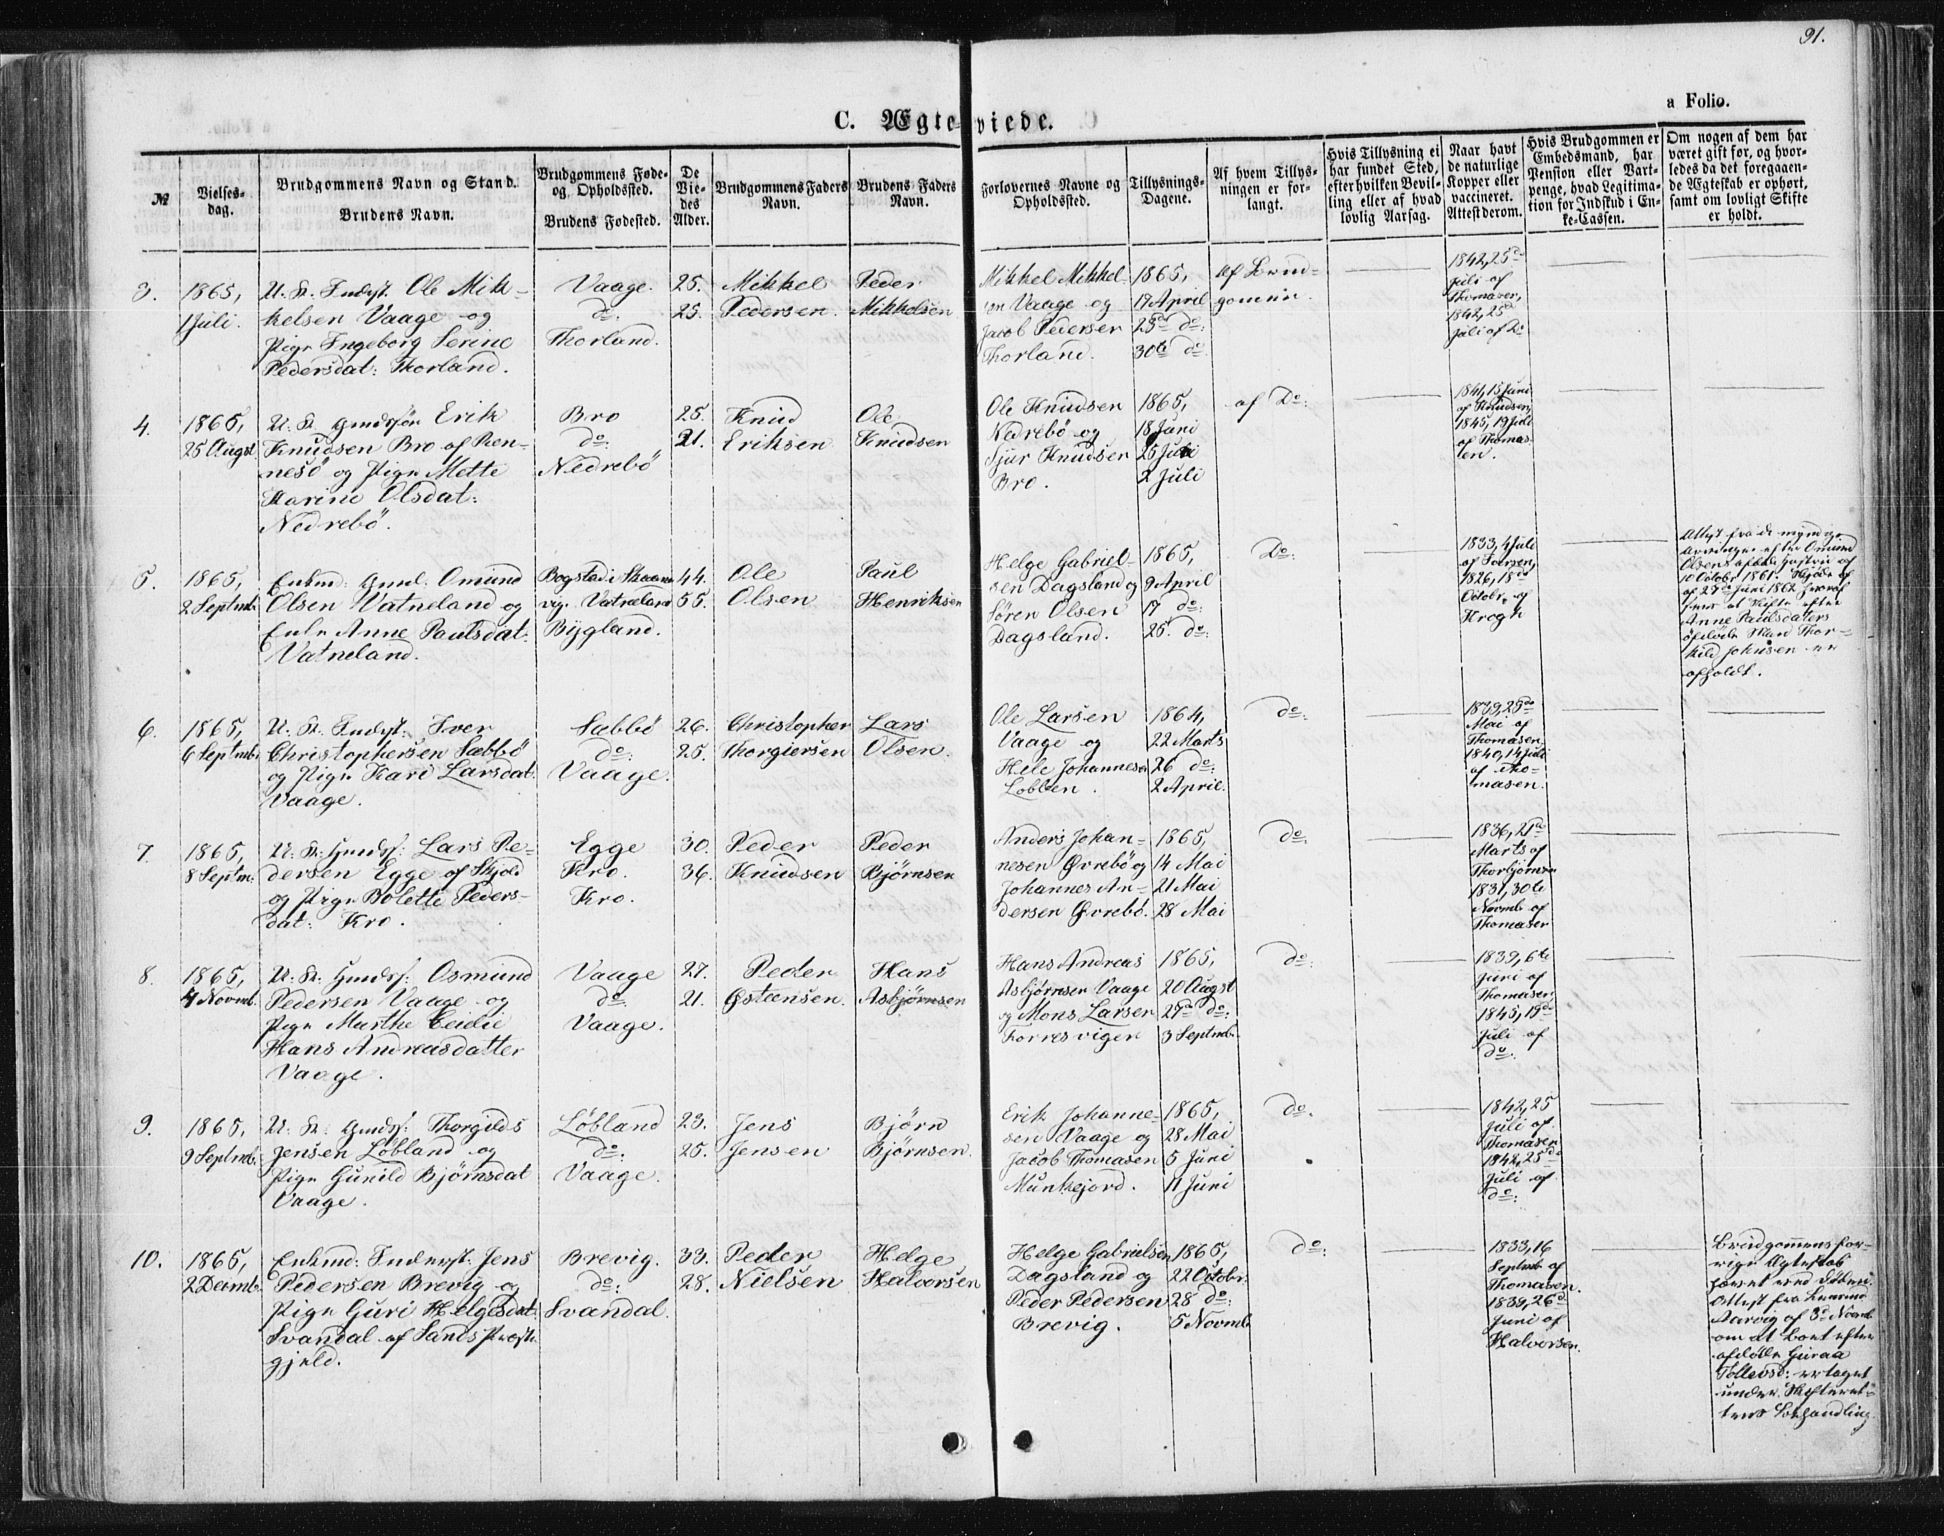 91.
a Folio.
C. Ægteviede.
№
Vielses-
dag.
Brudgommens Navn og Stand.
Brudens Navn.
Brudgommens Føde-
og Opholdssted.
Brudens Fødested.
De
Vie-
des
Alder.
Brudgommens Faders
Navn.
Brudens Faders
Navn.
Forlovernes Navne og
Opholdssted.
Tillysnings-
Dagene.
Af hvem Tillys-
ningen er for-
langt.
Hvis Tillysning ei
har fundet Sted,
efter hvilken Bevil-
ling eller af hvad
lovlig Aarsag.
Naar havt
de naturlige
Kopper eller
vaccineret.
Attest derom.
Hvis Brudgommen er
Embedsmand, har
Pension eller Vart-
penge, hvad Legitima-
tion for Indskud i En-
ke-Cassen.
Om nogen af dem har
været gift før, og hvor-
ledes da det foregaaen-
de Ægteskab er ophørt,
samt om lovligt Skifte
er holdt.
3.
1865,
1 Juli.
U. K. Inderst. Ole Mik-
kelsen Vaage og
Pige Ingeborg Serine
Pedersdat: Thorland.
Vaage.
do.
Thorland.
25.
25.
Mikkel
Pedersen.
Peder
Mikkelsen
Mikkel Mikkel-
sen Vaage og
Jacob Pedersen
Thorland.
1865,
17 April
23de do:
30te do.
Af Brud-
gommen.
1842, 25de
Juli af
Thomasen,
1842, 25de
Juli af Do
4.
1865,
25 Augst
U. K. Gmdssøn Erik
Knudsen Bro af Ren-
nesö og Pige Mette
Karine Olsdat:
Nedrebö.
Bro
do:
Nedrebö
25.
21.
Knud
Eriksen
Ole
Knudsen
Ole Knudsen
Nedrebö og
Sjur Knudsen
Bro.
1865,
18 Juni
25 Juni
2 Juli
af Do:
1841, 15 Juni
af Knudsen,
1845, 19 Juli
af Thomas-
sen.
5.
1865,
2 Septmb:
Enkmd: Gmd. Omund
Olsen Vatneland og
Enke Anne Paulsdat:
Vatneland.
Bogsted i Skaane-
vig. Vatneland
Bygland.
44.
55.
Ole
Olsen
Paul
Henriksen
Helge Gabriel-
sen Dagsland og
Søren Olsen
Dagsland.
1865,
9 April
17 do:
25. do:
Do:
1833, 4 Juli
af Iversen,
1826, 18de
Octobr. af
Krogh
Attest fra de myndige
Arvinger efter Omund
Olsens afdøde Hustru af
10 Octobr 1861. Skjøde af
af 27de Juni 1862 hvoraf
sees at Skifte efter
Anne Paulsdaters
afdøde Mand Thor-
kild Johnsen er
afholdt.
6.
1865,
6 Septmb:
U. K. Inderst: Iver
Christophersen Sæbbö
og Pige Kari Larsdat:
Vaage.
Sæbbö
do:
Vaage.
26.
25.
Christopher
Thorgiersen
Lars
Olsen.
Ole Larsen
Vaage og
Hele Johannesen
Löblen.
1864,
22 Marts
26 do:
2 April.
do:
1839, 25de
Mai af
Thomasen
1840, 14 Juli
af Tho-
masen.
7.
1865,
8 Septm:
U: K: Gmdss: Lars Pe-
dersen Egge af Skjold
og Pige Bolette Peders-
dat: Kro.
Egge
Kro.
Kro.
30.
36.
Peder
Knudsen
Peder
Bjørnsen
Anders Johan-
nesen Øvrebö og
Johannes An-
dersen Øvrebö.
1865,
14 Mai
21 Mai
28 Mai
do:
1836, 21de
Marts af
Thorbjørnsen
1831, 30te
Novmb. af
Thomasen
8.
1865,
4 Novmb.
U. K. Gmdss: Osmund
Pedersen Vaage og
Pige Marthe Ceidie
Hans Andreasdatter
Vaage.
Vaage
do:
Vaage.
27.
21.
Peder
Østensen.
Hans
Asbjørnsen
Hans Andreas
Asbjørnsen Vaage
og Mons Larsen
Torresvigen
1865,
20 Augst
27de do:
3 Septmb.
do:
1839, 6te
Juni af
Thomasen
1845, 19de
Juli af
do:
9.
1865,
9 Septmb:
U. K. Gmdss: Thorgilds
Jensen Löbland og
Pige Gunild Bjørnsdat
Vaage.
Löbland
do:
Vaage.
23.
25.
Jens
Jensen
Bjørn
Bjørnsen.
Erik Johanne-
sen Vaage og
Jacob Thomasen
Munkejord.
1865,
28 Mai
5 Juni
11 Juni
do.
1842, 25
Juli af
Thomasen
1842, 25de
Juli af
do:
10.
1865,
2 Decmb.
Enkmd: Inderst. Jens
Pedersen Brevig og
Pige Guri Helgesdat:
Svandal af Sands Præste-
gjeld.
Brevig.
do:
Svandal.
33.
28.
Peder
Nielsen
Helge
Halvorsen
Helge Gabrielsen
Dagsland og
Peder Pedersen
Brevig.
1865,
22 Octobr:
28 do:
5 Novmb.
do:
1833, 16
Septmb. af
Thomasen.
1839, 26de
Juni af
Halvorsen.
Brudgommens for-
rige Ægteskab
hævet ved Døden.
Attest fra
Aarvig af 3de Novmb
om at Boet efter
afdøde Guraa
Tollevsd: er taget
under Skifteret-
tens Behandling.